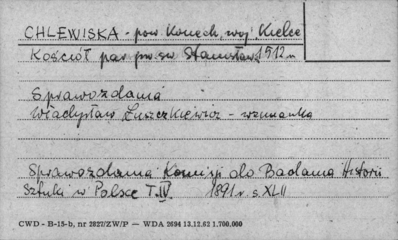 CHLEWISKA - pow. Końech, woj. Kielce
Kościół par. pw. św. Stanisława, 1512 r.
Sprawozdania
Władysław Łuszczkiewicz - wzmianka
Sprawozdania Komisji do Badania Historii
Sztuki w Polsce T. IV. 1891 r. s. XLII
CWD - B-15-b, nr 2827/ZW/P — WDA 2694 13.12.62 1.700.000